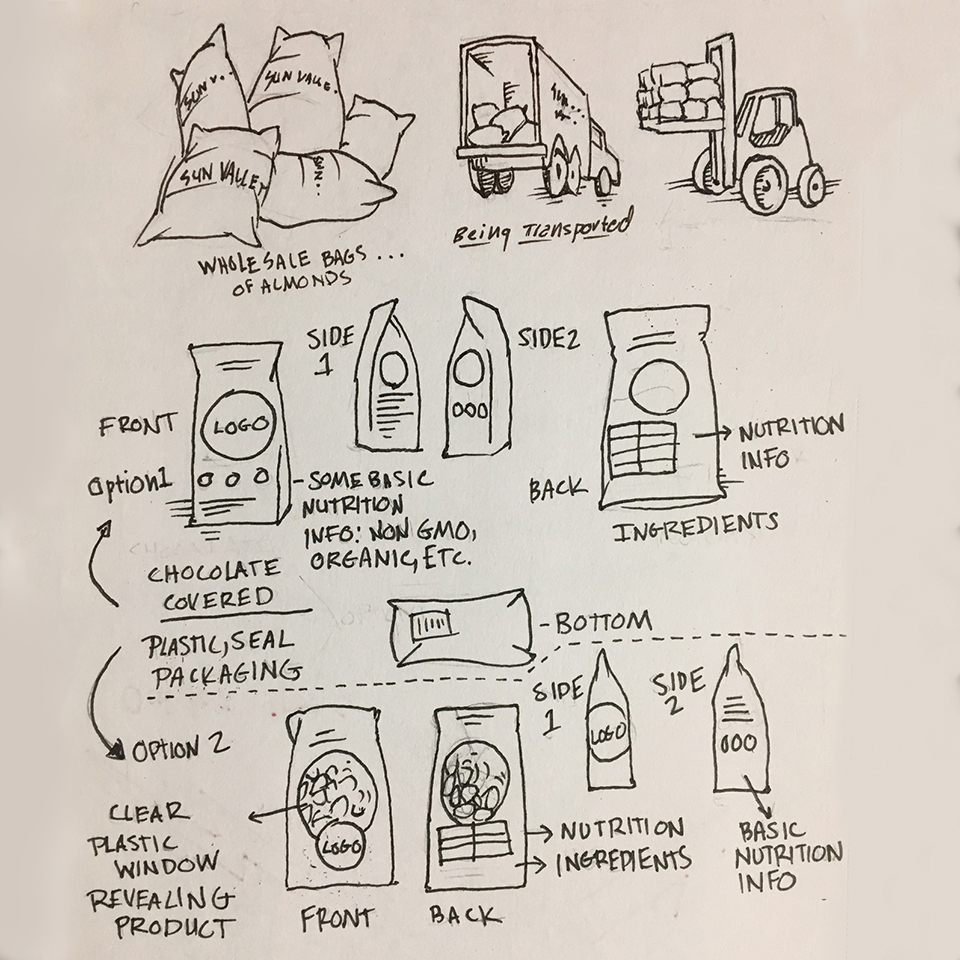 SUN V..
SUN VALLE.
SUN VALLEY
SUN..
WHOLESALE BAGS ...
OF ALMONDS
Being Transported
SIDE
1
SIDE 2
FRONT
Option 1
LOGO
SOME BASIC
NUTRITION
INFO: NON GMO,
ORGANIC, ETC.
NUTRITION
INFO
BACK
INGREDIENTS
CHOCOLATE
COVERED
PLASTIC, SEAL
PACKAGING
BOTTOM
OPTION 2
SIDE
1
LOGO
SIDE
2
CLEAR
PLASTIC
WINDOW
REVEALING
PRODUCT
LOGO
FRONT
BACK
NUTRITION
INGREDIENTS
BASIC
NUTRITION
INFO